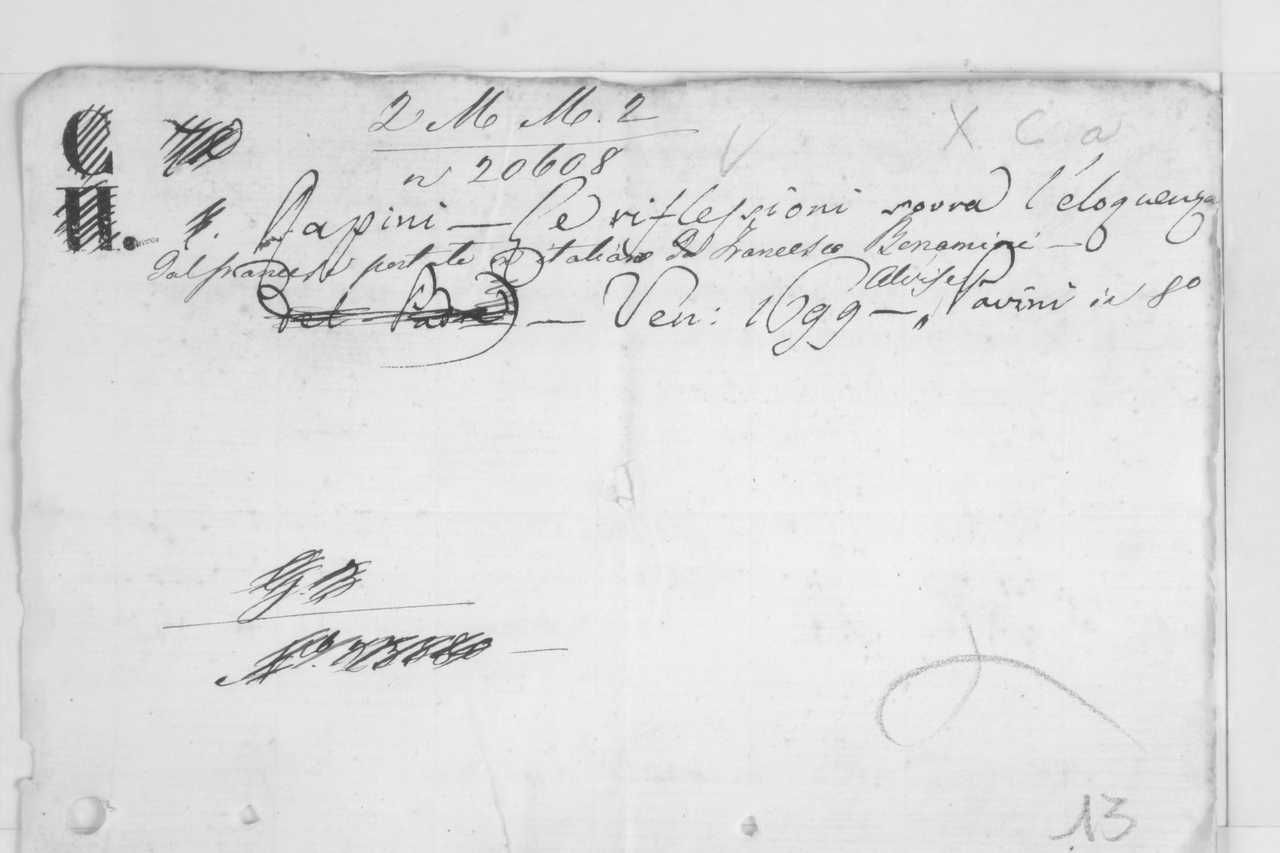 2 M M. 2
X C a
n 20608
C
n.
P. Rapini — Le riflessioni sovra l'eloquenza
dal francese portate in italiano da Francesco Benamini —
del Padre — Ven: 1699 — Alvise Pavini in 8o
13